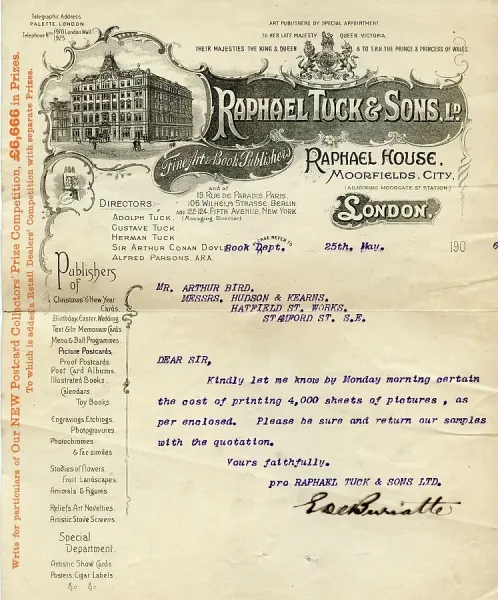 Telegraphic Address.
PALETTE, LONDON.
Telephone Nos 970 London Wall
925
ART PUBLISHERS BY SPECIAL APPOINTMENT
TO HER LATE MAJESTY QUEEN VICTORIA.
THEIR MAJESTIES THE KING & QUEEN & TO T.R.H. THE PRINCE & PRINCESS OF WALES.
RAPHAEL TUCK & SONS, LD.
Fine Art & Book Publishers
RAPHAEL HOUSE,
MOORFIELDS, CITY,
(ADJOINING MOORGATE ST STATION)
LONDON,
and at
19, RUE DE PARADIS, PARIS.
106, WILHELM STRASSE, BERLIN.
AND 122-124, FIFTH AVENUE, NEW YORK.
(Managing Director)
DIRECTORS:
ADOLPH TUCK
GUSTAVE TUCK.
HERMAN TUCK
SIR ARTHUR CONAN DOYLE
ALFRED PARSONS, A.R.A.
Book Dept. 25th. May. 190 6
MR. ARTHUR BIRD.
MESSRS. HUDSON & KEARNS.
HATFIELD ST. WORKS.
STAMFORD ST. S.E.
DEAR SIR,
Kindly let me know by Monday morning certain
the cost of printing 4,000 sheets of pictures , as
per enclosed. Please be sure and return our samples
with the quotation.
Yours faithfully.
pro RAPHAEL TUCK & SONS LTD.
Publishers
of
Christmas & New Year
Cards.
Birthday, Easter, Wedding
Text & In Memoriam Cards.
Menu & Ball Programmes.
Picture Postcards.
Proof Postcards.
Post Card Albums.
Illustrated Books.
Calendars.
Toy Books.
Engravings, Etchings,
Photogravures.
Photochromes
& Fac-similes
Studies of Flowers.
Fruit, Landscapes.
Animals & Figures.
Reliefs, Art Novelties.
Artistic Stove Screens.
Special
Department.
Artistic Show Cards
Posters, Cigar Labels
&c &c
Write for particulars of Our NEW Postcard Collectors' Prize Competition, £6,666 in Prizes.
To which is added a Retail Dealers' Competition with separate Prizes.